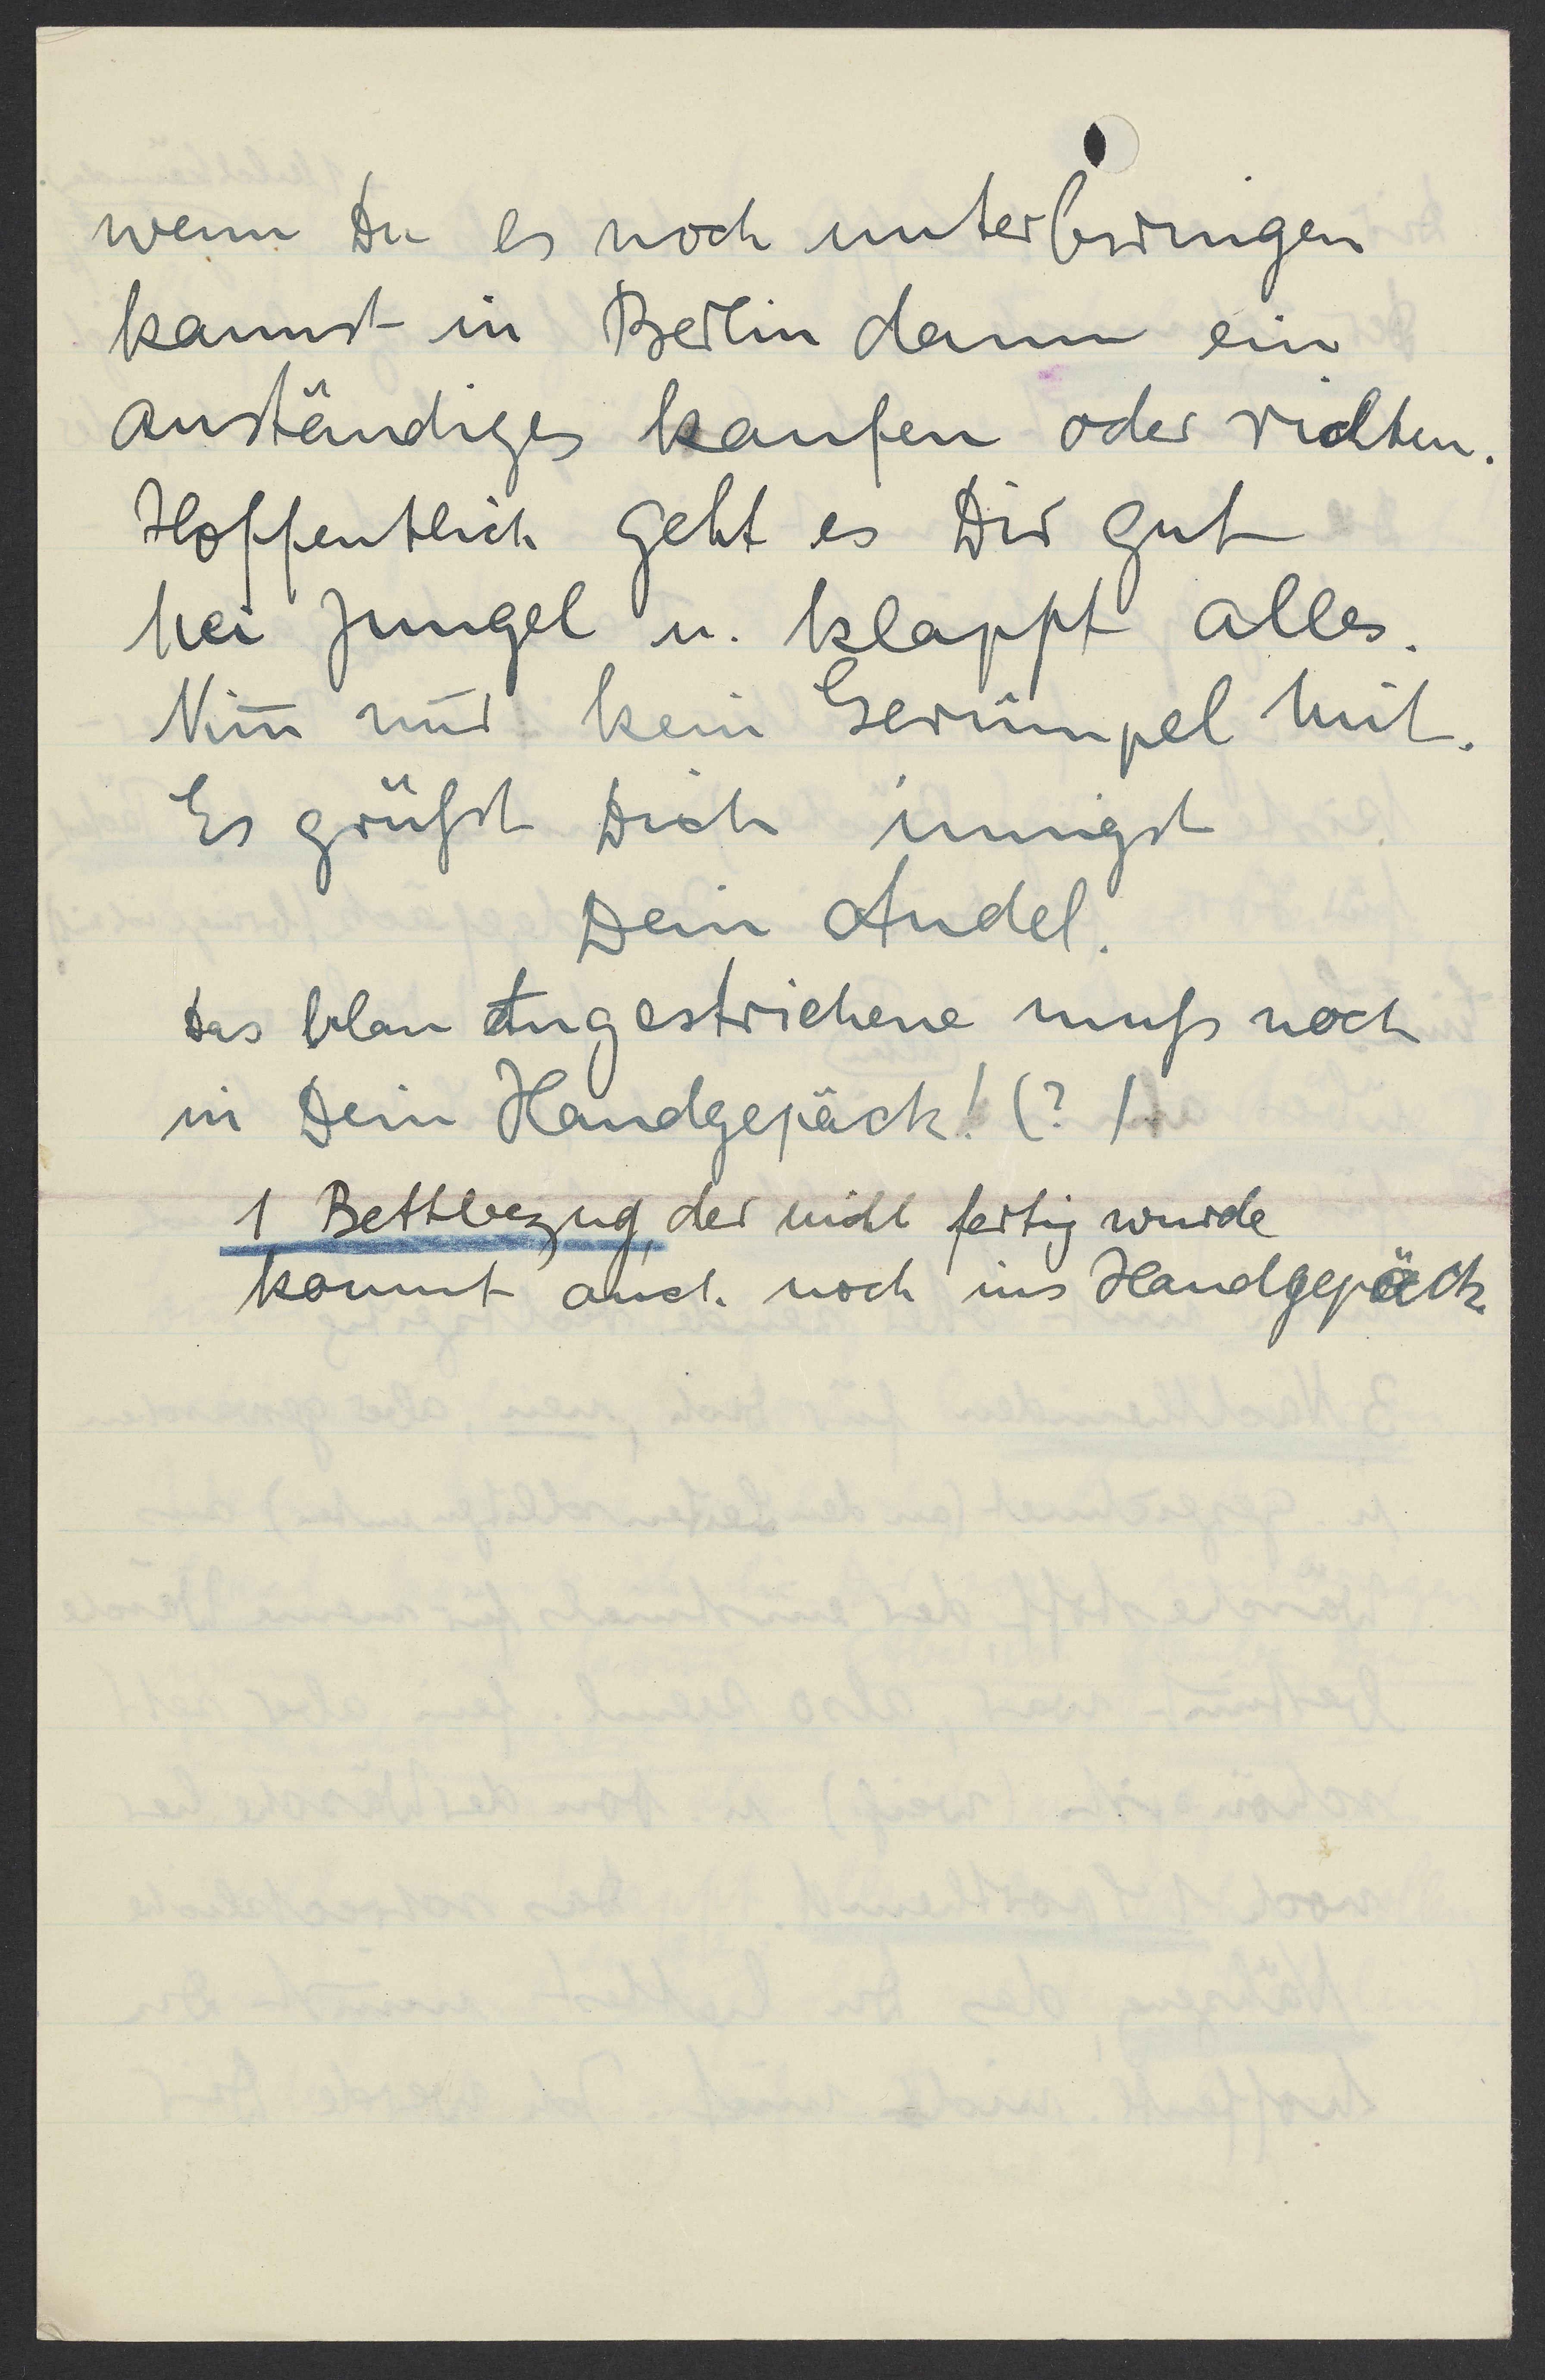 wenn Du es noch unterbringen
kannst in Berlin dann ein
anständiges kaufen oder richten.
Hoffentlich geht es Dir gut
bei Jungel u. klappt alles.
Nim̅ nur kein Gerümpel mit.
Es grüßt Dich innigst
Dein Andel.
Das blau Angestrichene muß noch
in Dein Handgepäck! (?)
1 Bettbezug, der nicht fertig wurde
kommt auch noch ins Handgepäck.